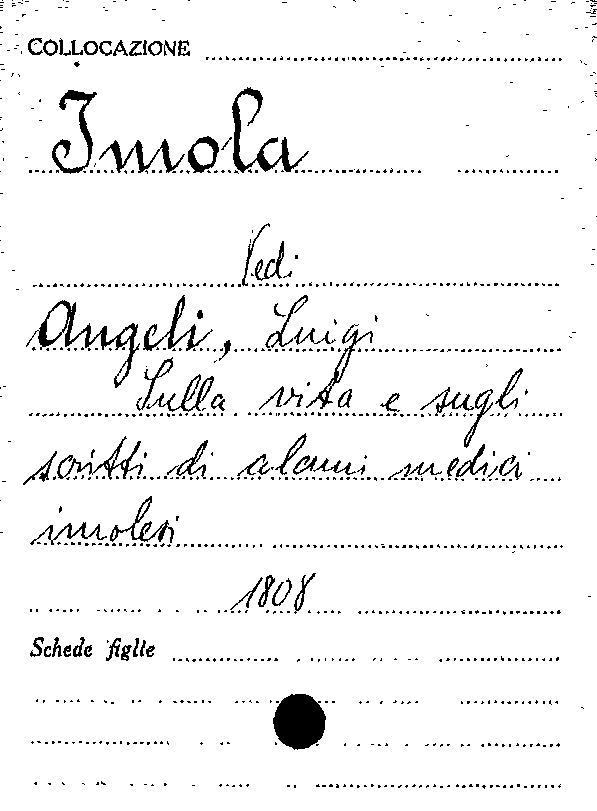 COLLOCAZIONE
Imola
Vedi
Angeli, Luigi
Sulla vita e sugli
scritti di alcuni medici
imolesi
1808
Schede figlie